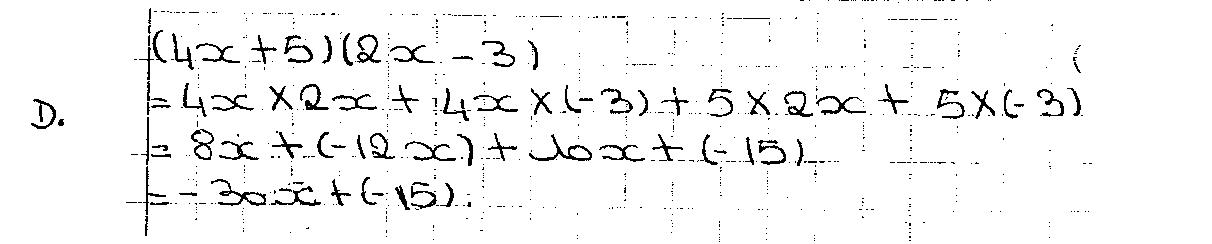 (4x+5)(2x-3)
D. =4x×2x+4x×(-3)+5×2x+5×(-3)
= 8x+(-12x)+10x+(-15)
= -30x+(-15).